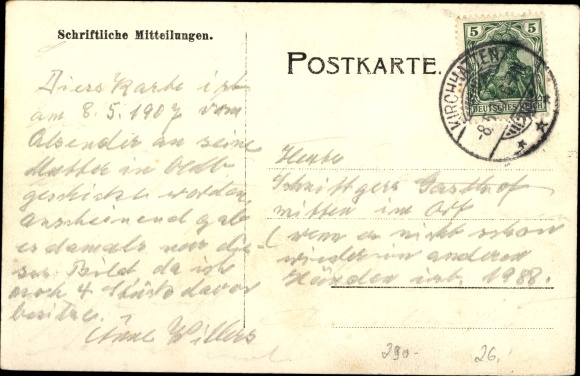 Schriftliche Mitteilungen.
POSTKARTE.
5 5
DEUTSCHES REICH
KIRCHHATTEN
Diese Karte ist
am 8.5.1907 vom
Absender an seine
Mutter in Oldb
geschickt worden,
anscheinend gab
es damals nur die-
ses Bild da ich
noch 4 Stück davon
besitze.
Änne Willers
Heute
Schnittgers Gasthof
mitten im Ort
(wenn er nicht schon
wieder in anderen
Händen ist. 1988.
290.- 26.